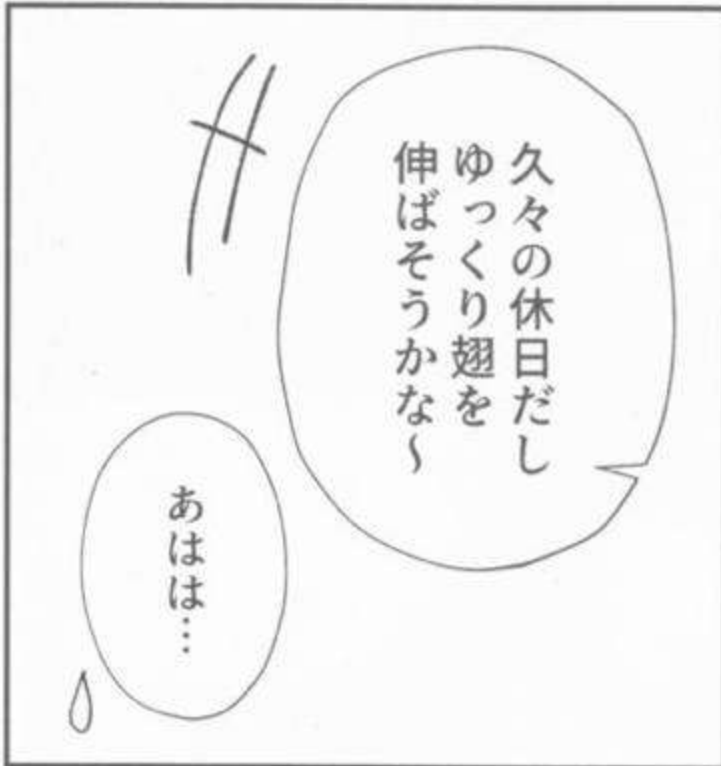 久々の休日だし
ゆっくり翅を
伸ばそうかな～
あはは…